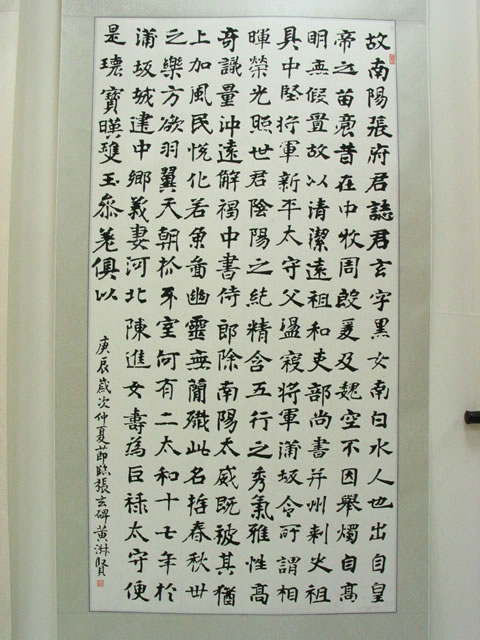 故南陽張府君誌君玄字黑女南白水人也出自皇
帝之苗裔昔在中牧周殷爰及魏空不因舉燭自高
明無假置故以清潔遠祖和吏部尚書并州刺史祖
具中堅將軍新平太守父盪寇將軍蒲坂令所謂相
暉榮光照世君陰陽之純精含五行之秀氣雅性高
奇議量沖遠解褐中書侍郎除南陽太威既被其猶
上加風民悅化若魚啚幽靈無蕳殲此名哲春秋卅
之樂方欲羽翼天朝抓牙室何有二太和十七年於
蒲坂城建中鄉義妻河北陳進女壽為巨祿太守便
是瓌寶暎雙玉參差俱以
庚辰歲次仲夏節臨張玄碑黃淋賢